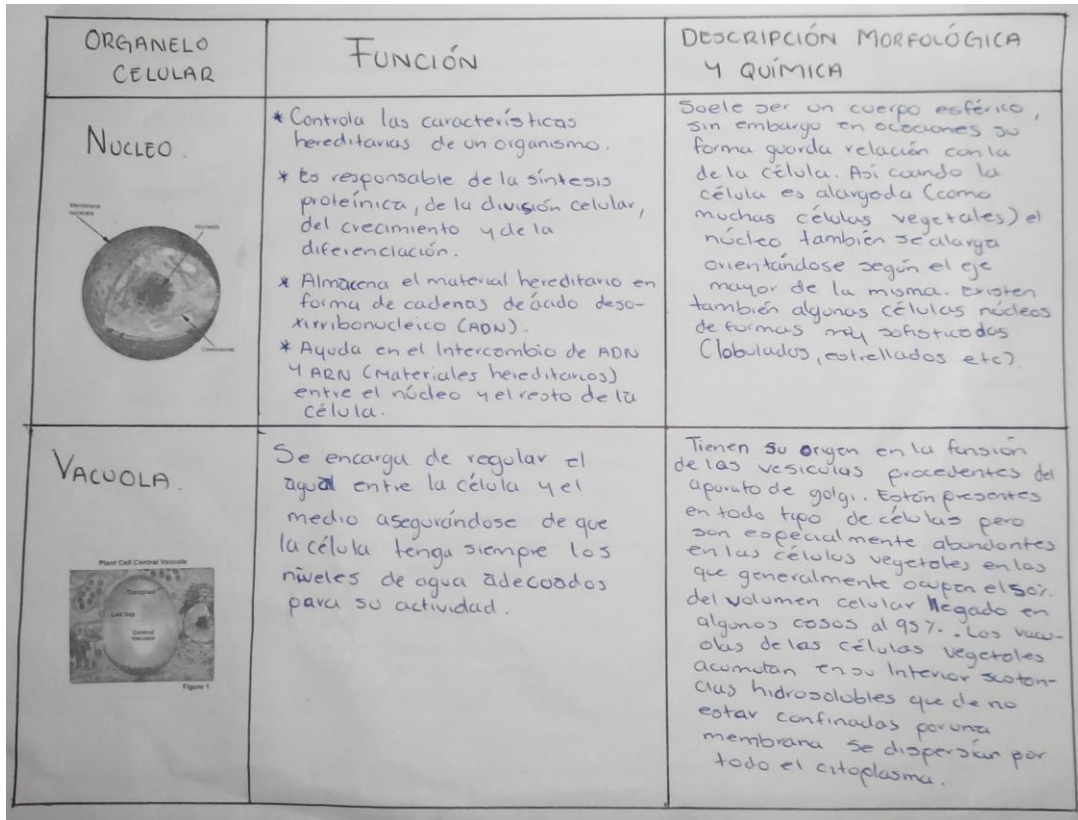 ORGANELO
CELULAR
FUNCIÓN
DESCRIPCIÓN MORFOLÓGICA
Y QUÍMICA
NUCLEO.
Membrana
nuclear
Nucleolo
Cromosoma
* Controla las características
hereditarias de un organismo.
* Es responsable de la síntesis
proteínica, de la división celular,
del crecimiento y de la
diferenciación.
* Almacena el material hereditario en
forma de cadenas de ácido deso-
xirribonucleico (ADN).
* Ayuda en el Intercambio de ADN
Y ARN (Materiales hereditarios)
entre el núcleo y el resto de la
célula.
Soele ser un cuerpo esférico,
sin embargo en ocaciones su
forma guarda relación con la
de la célula. Así cuando la
célula es alargada (como
muchas células vegetales) el
núcleo también se alarga
orientándose según el eje
mayor de la misma. Existen
también algunas células núcleos
de formas muy sofisticadas
(lobulados, estrellados etc).
VACUOLA.
Plant Cell Central Vacuole
Tonoplast
Cell Sap
Central
Vacuole
Figure 1
Se encarga de regular el
agua entre la célula y el
medio asegurándose de que
la célula tenga siempre los
niveles de agua adecuados
para su actividad.
Tienen su origen en la funsión
de las vesiculas procedentes del
aparato de golgi. Están presentes
en todo tipo de células pero
son especialmente abundantes
en las células vegetales en las
que generalmente ocupan el 50%
del volumen celular llegado en
algunos casos al 95%. Las vacu-
olas de las células vegetales
acumulan en su Interior sustan-
cias hidrosolubles que de no
estar confinadas por una
membrana se dispersían por
todo el citoplasma.